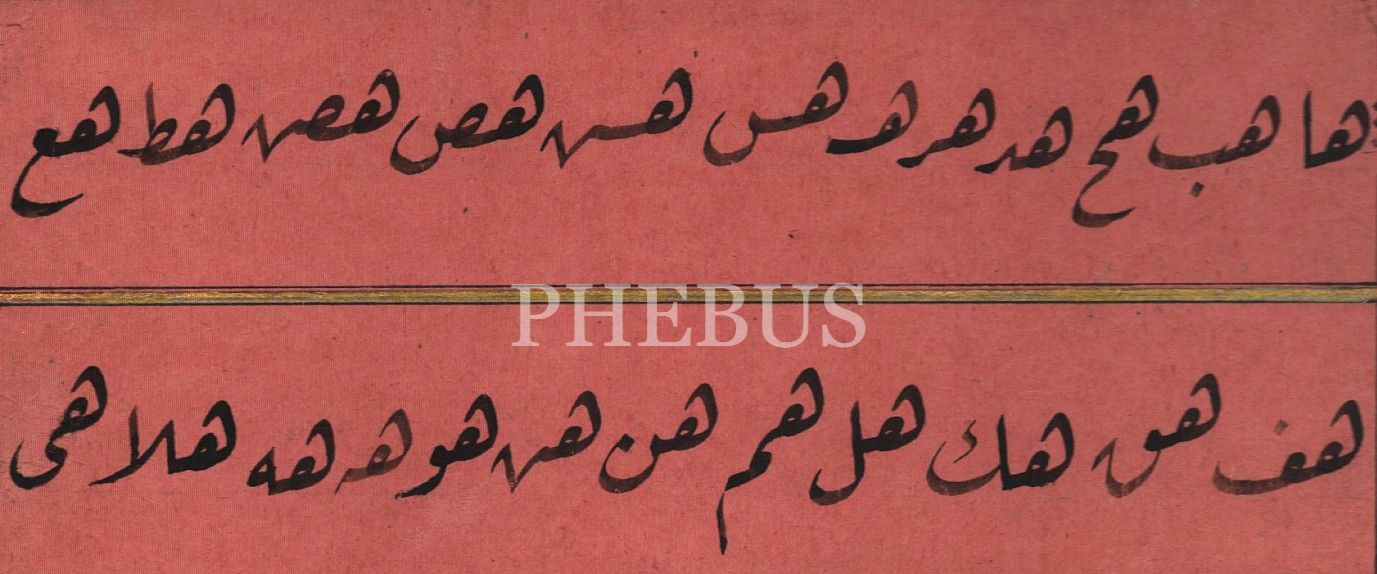 ها هب هح هد هر هر هس هس هص هص هط هع
PHEBUS
هف هق هك هل هم هن هن هو هه هه هلا هى